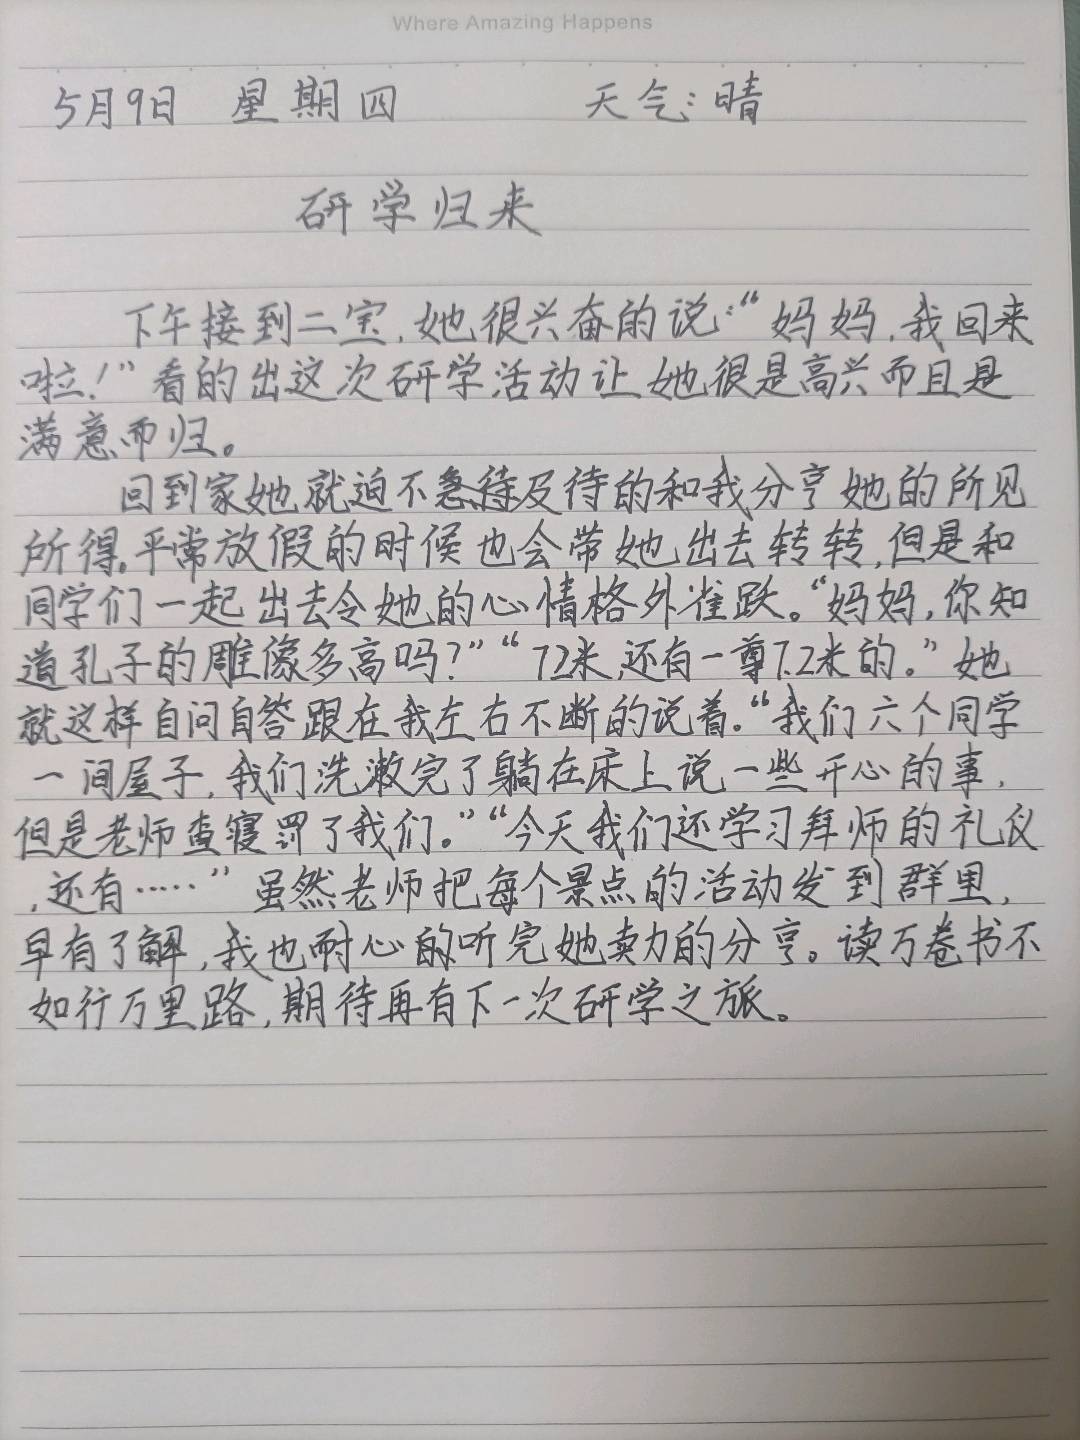 Where Amazing Happens
5月9日 星期四 天气:晴
研学归来
下午接到二宝,她很兴奋的说:“妈妈,我回来
啦!”看的出这次研学活动让她很是高兴而且是
满意而归。
回到家她就迫不及待的和我分享她的所见
所得。平常放假的时候也会带她出去转转,但是和
同学们一起出去令她的心情格外雀跃。“妈妈,你知
道孔子的雕像多高吗?”“72米,还有一尊7.2米的。”她
就这样自问自答跟在我左右不断的说着。“我们六个同学
一间屋子,我们洗漱完了躺在床上说一些开心的事,
但是老师查寝罚了我们。”“今天我们还学习拜师的礼仪
,还有……”虽然老师把每个景点的活动发到群里,
早有了解,我也耐心的听完她卖力的分享。读万卷书不
如行万里路,期待再有下一次研学之旅。